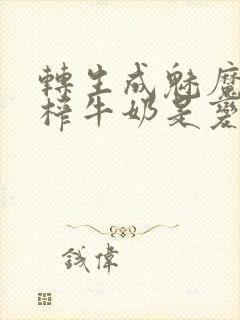 轉生成魅魔
榨牛奶是變
鋨偉